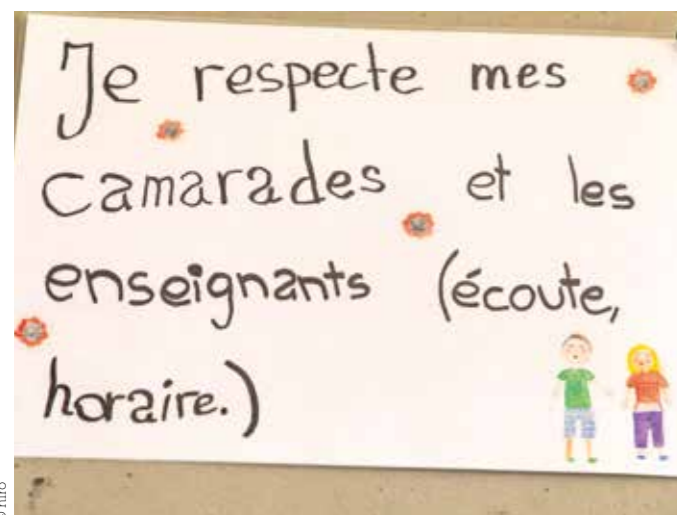 Je respecte mes
camarades et les
enseignants (écoute,
horaire.)